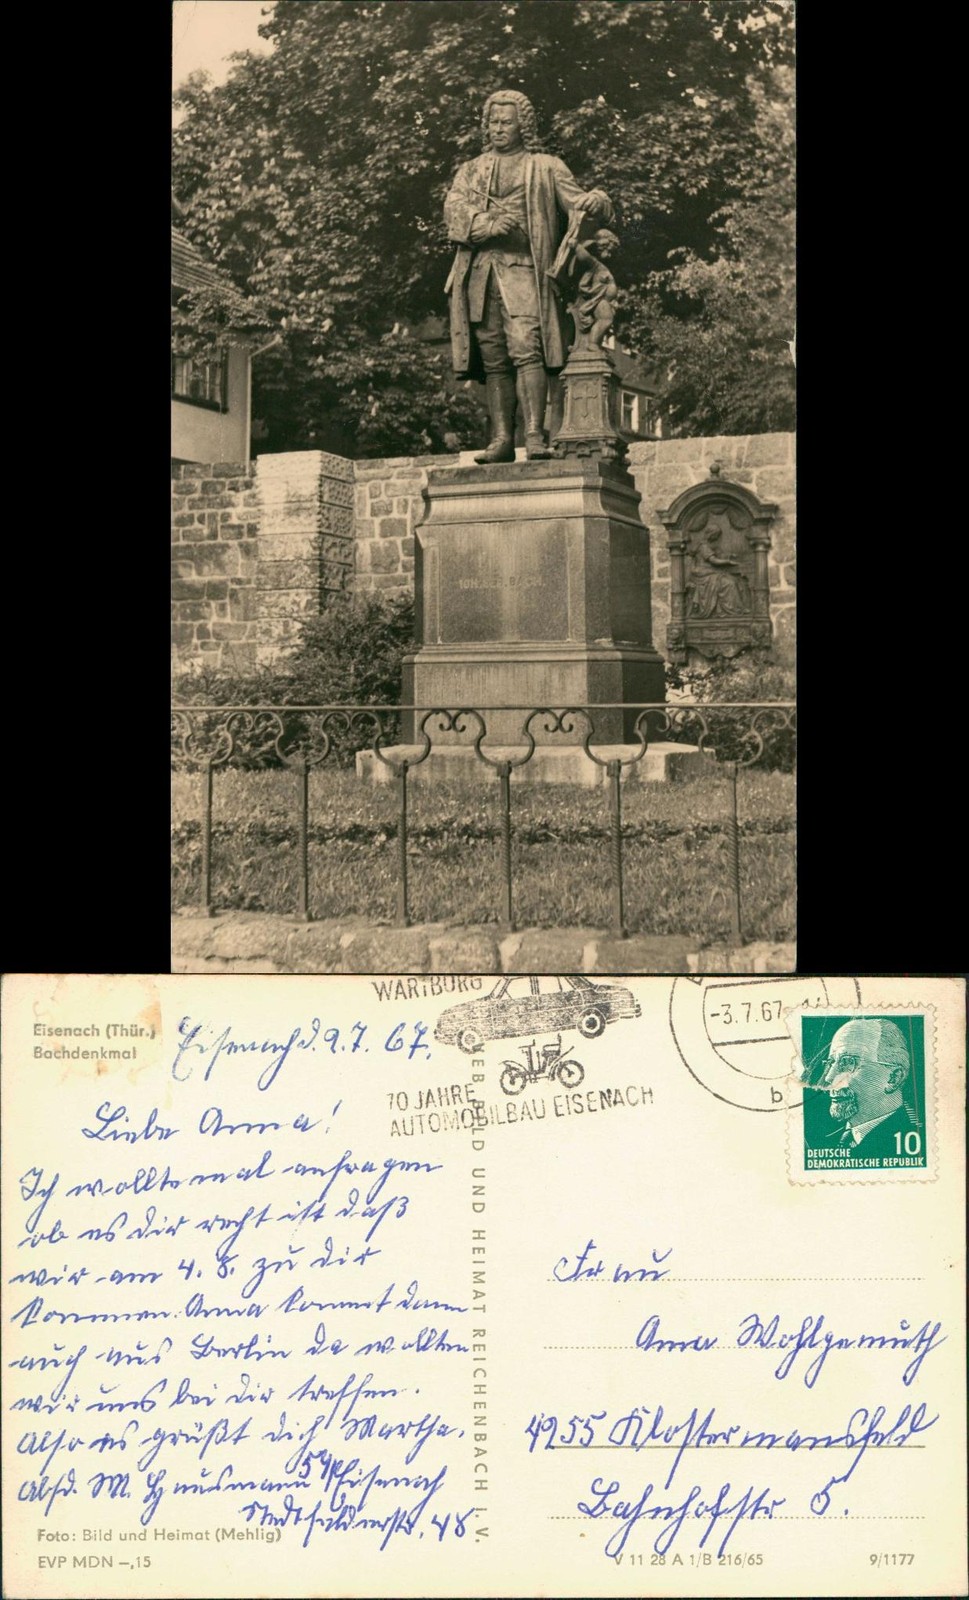 JOH. SEB. BACH.
Eisenach (Thür.)
Bachdenkmal
WARTBURG
70 JAHRE
AUTOMOBILBAU EISENACH
-3.7.67
b
10
DEUTSCHE
DEMOKRATISCHE REPUBLIK
Eisenach d. 2.7.67.
Liebe Anna!
Ich wollte mal anfragen
ob es dir recht ist daß
wir am 4. 8. zu dir
kommen. Anna kommt dann
auch aus Berlin da wollten
wir uns bei dir treffen.
Also es grüßt dich Martha.
Absd. M. Hausmann 59 Eisenach
Stedtfelderstr. 48
VEB BILD UND HEIMAT REICHENBACH I. V.
Frau
Anna Wohlgemuth
4255 Klostermansfeld
Bahnhofstr 5.
Foto: Bild und Heimat (Mehlig)
EVP MDN –,15
V 11 28 A 1/B 216/65
9/1177